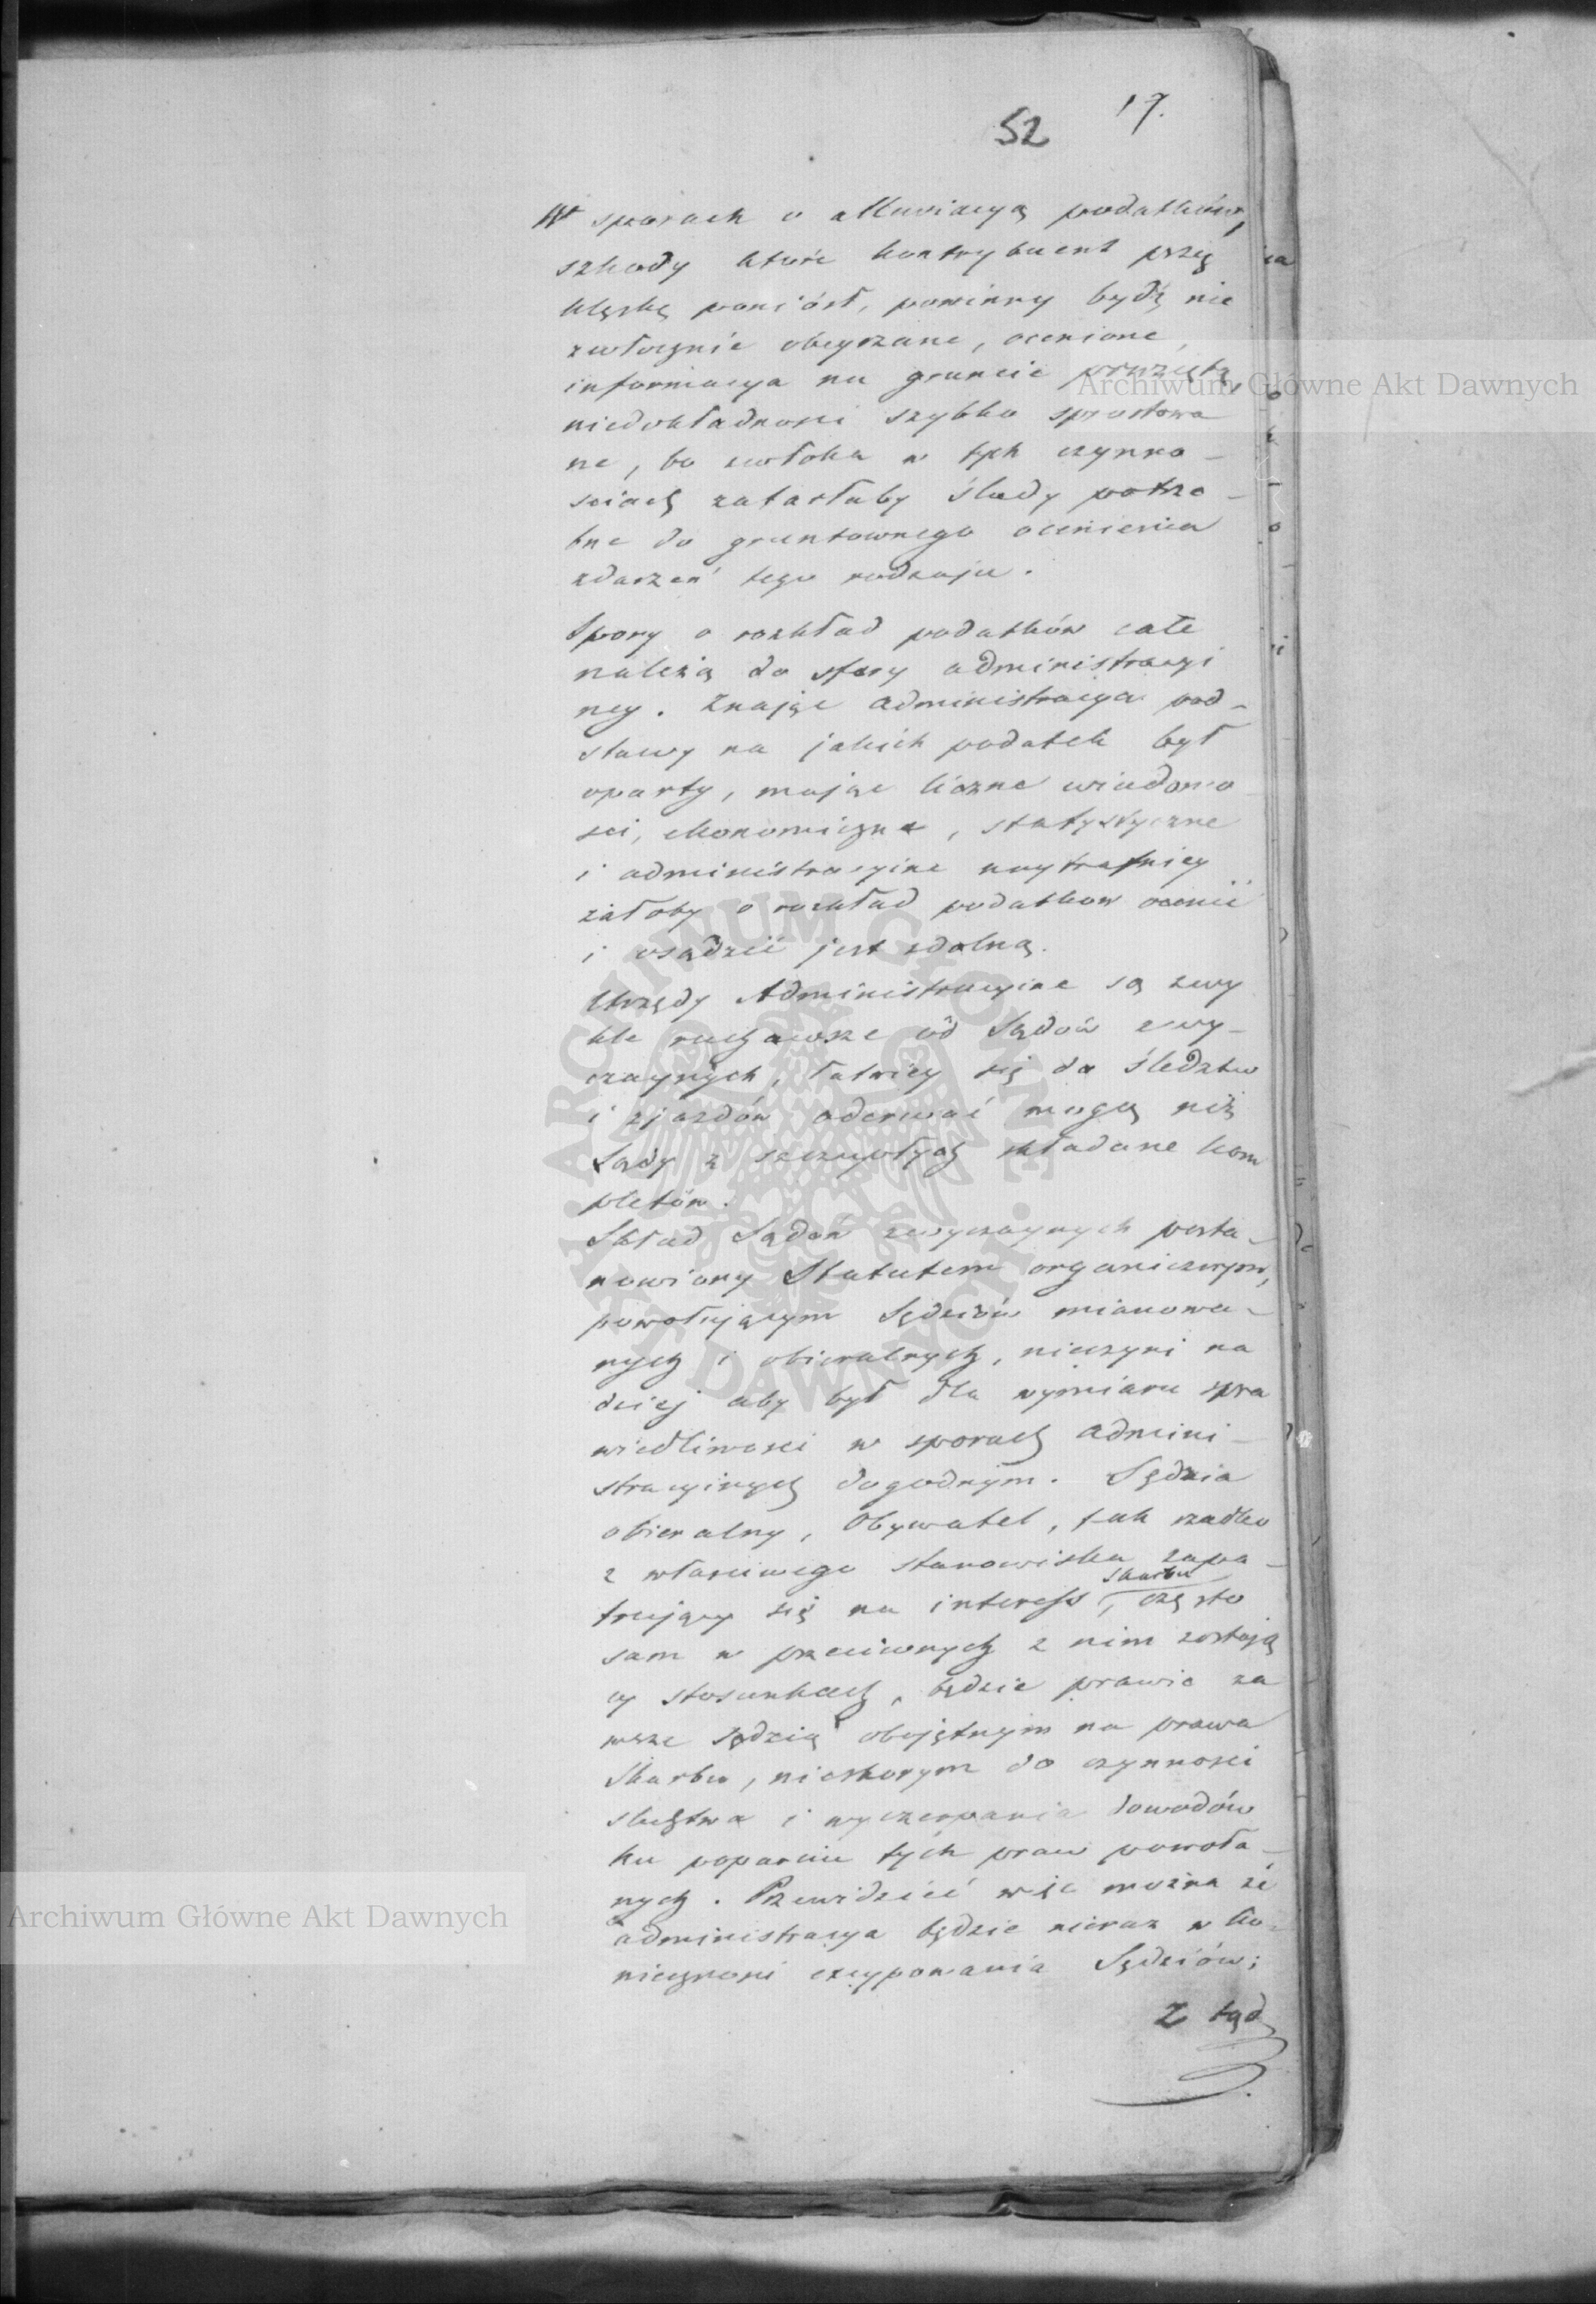 52 17.
W sporach o alluwiacyą podatków,
szkody które kontrybuent przez
klęskę poniósł, powinny bydź nie
zwłocznie obeyrzane, ocenione,
informacya na gruncie powzięta,
niedokładnosci szybko sprostowa
ne, bo zwłoka w tych czynno-
sciach zatarłaby ślady potrze-
bne do gruntownego ocenienia
zdarzeń tego rodzaju.
Spory o rozkład podatków całe
należą do sfery administracyi
ney. Znając administracya pod-
stawy na jakich podatek był
oparty, mając liczne wiadomo
sci, ekonomiczne, statystyczne
i administracyine naytrafniey
żałoby o rozkład podatkow ocenić
i osądzić jest zdolną.
Urzędy Administracyine są zwy
kle ruchawsze od Sądów zwy-
czaynych, łatwiey się do śledztw
i zjazdów oderwać mogą niż
Sądy z szczupłych składane kom
pletów.
Skład Sądów zwyczaynych posta-
nowiony Statutem organicznym,
powołującym Sędziów mianowa-
nych i obieralnych, nieczyni na
dziej aby był dla wymiaru spra
wiedliwosci w sporach admini-
stracyinych dogodnym. Sędzia
obieralny, Obywatel, tak rzadko
z własciwego stanowiska zapa-
trujący się na interess Skarbu, często
sam w przeciwnych z nim zostają
cy stosunkach, będzie prawie za
wsze sędzią obojętnym na prawa
Skarbu, nieskorym do czynnosci
śledztwa i wyczerpania dowodów
ku poparciu tych praw powoła-
nych. Przewidzieć więc można że
administracya będzie nieraz w ko-
niecznosci excypowania Sędziów;
Z tąd
Archiwum Główne Akt Dawnych
Archiwum Główne Akt Dawnych
ARCHIWUM GŁÓWNE AKT DAWNYCH